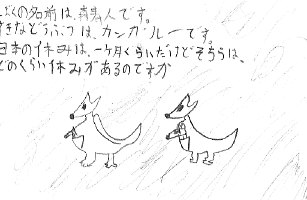 ぼくの名前は、真実人です。
好きなどうぶつは、カンガルーです。
日本の休みは、一ヶ月くらいだけどそちらは、
どのくらい休みがあるのですか